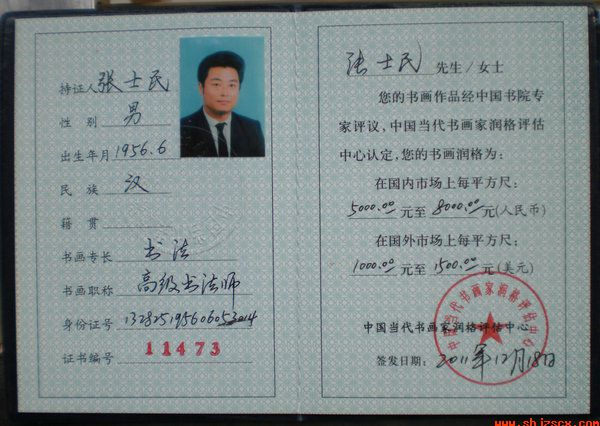 持证人 张士民
性别 男
出生年月 1956.6
民族 汉
籍贯
书画专长 书法
书画职称 高级书法师
身份证号
证书编号 11473
张士民 先生/女士
您的书画作品经中国书院专
家评议，中国当代书画家润格评估
中心认定，您的书画润格为：
在国内市场上每平方尺：
5000.00 元至 8000.00 元(人民币)
在国外市场上每平方尺：
1000.00 元至 1500.00 元(美元)
中国当代书画家润格评估中心
中国当代书画家润格评估中心
签发日期： 2011年12月18日
www.shjzscx.com